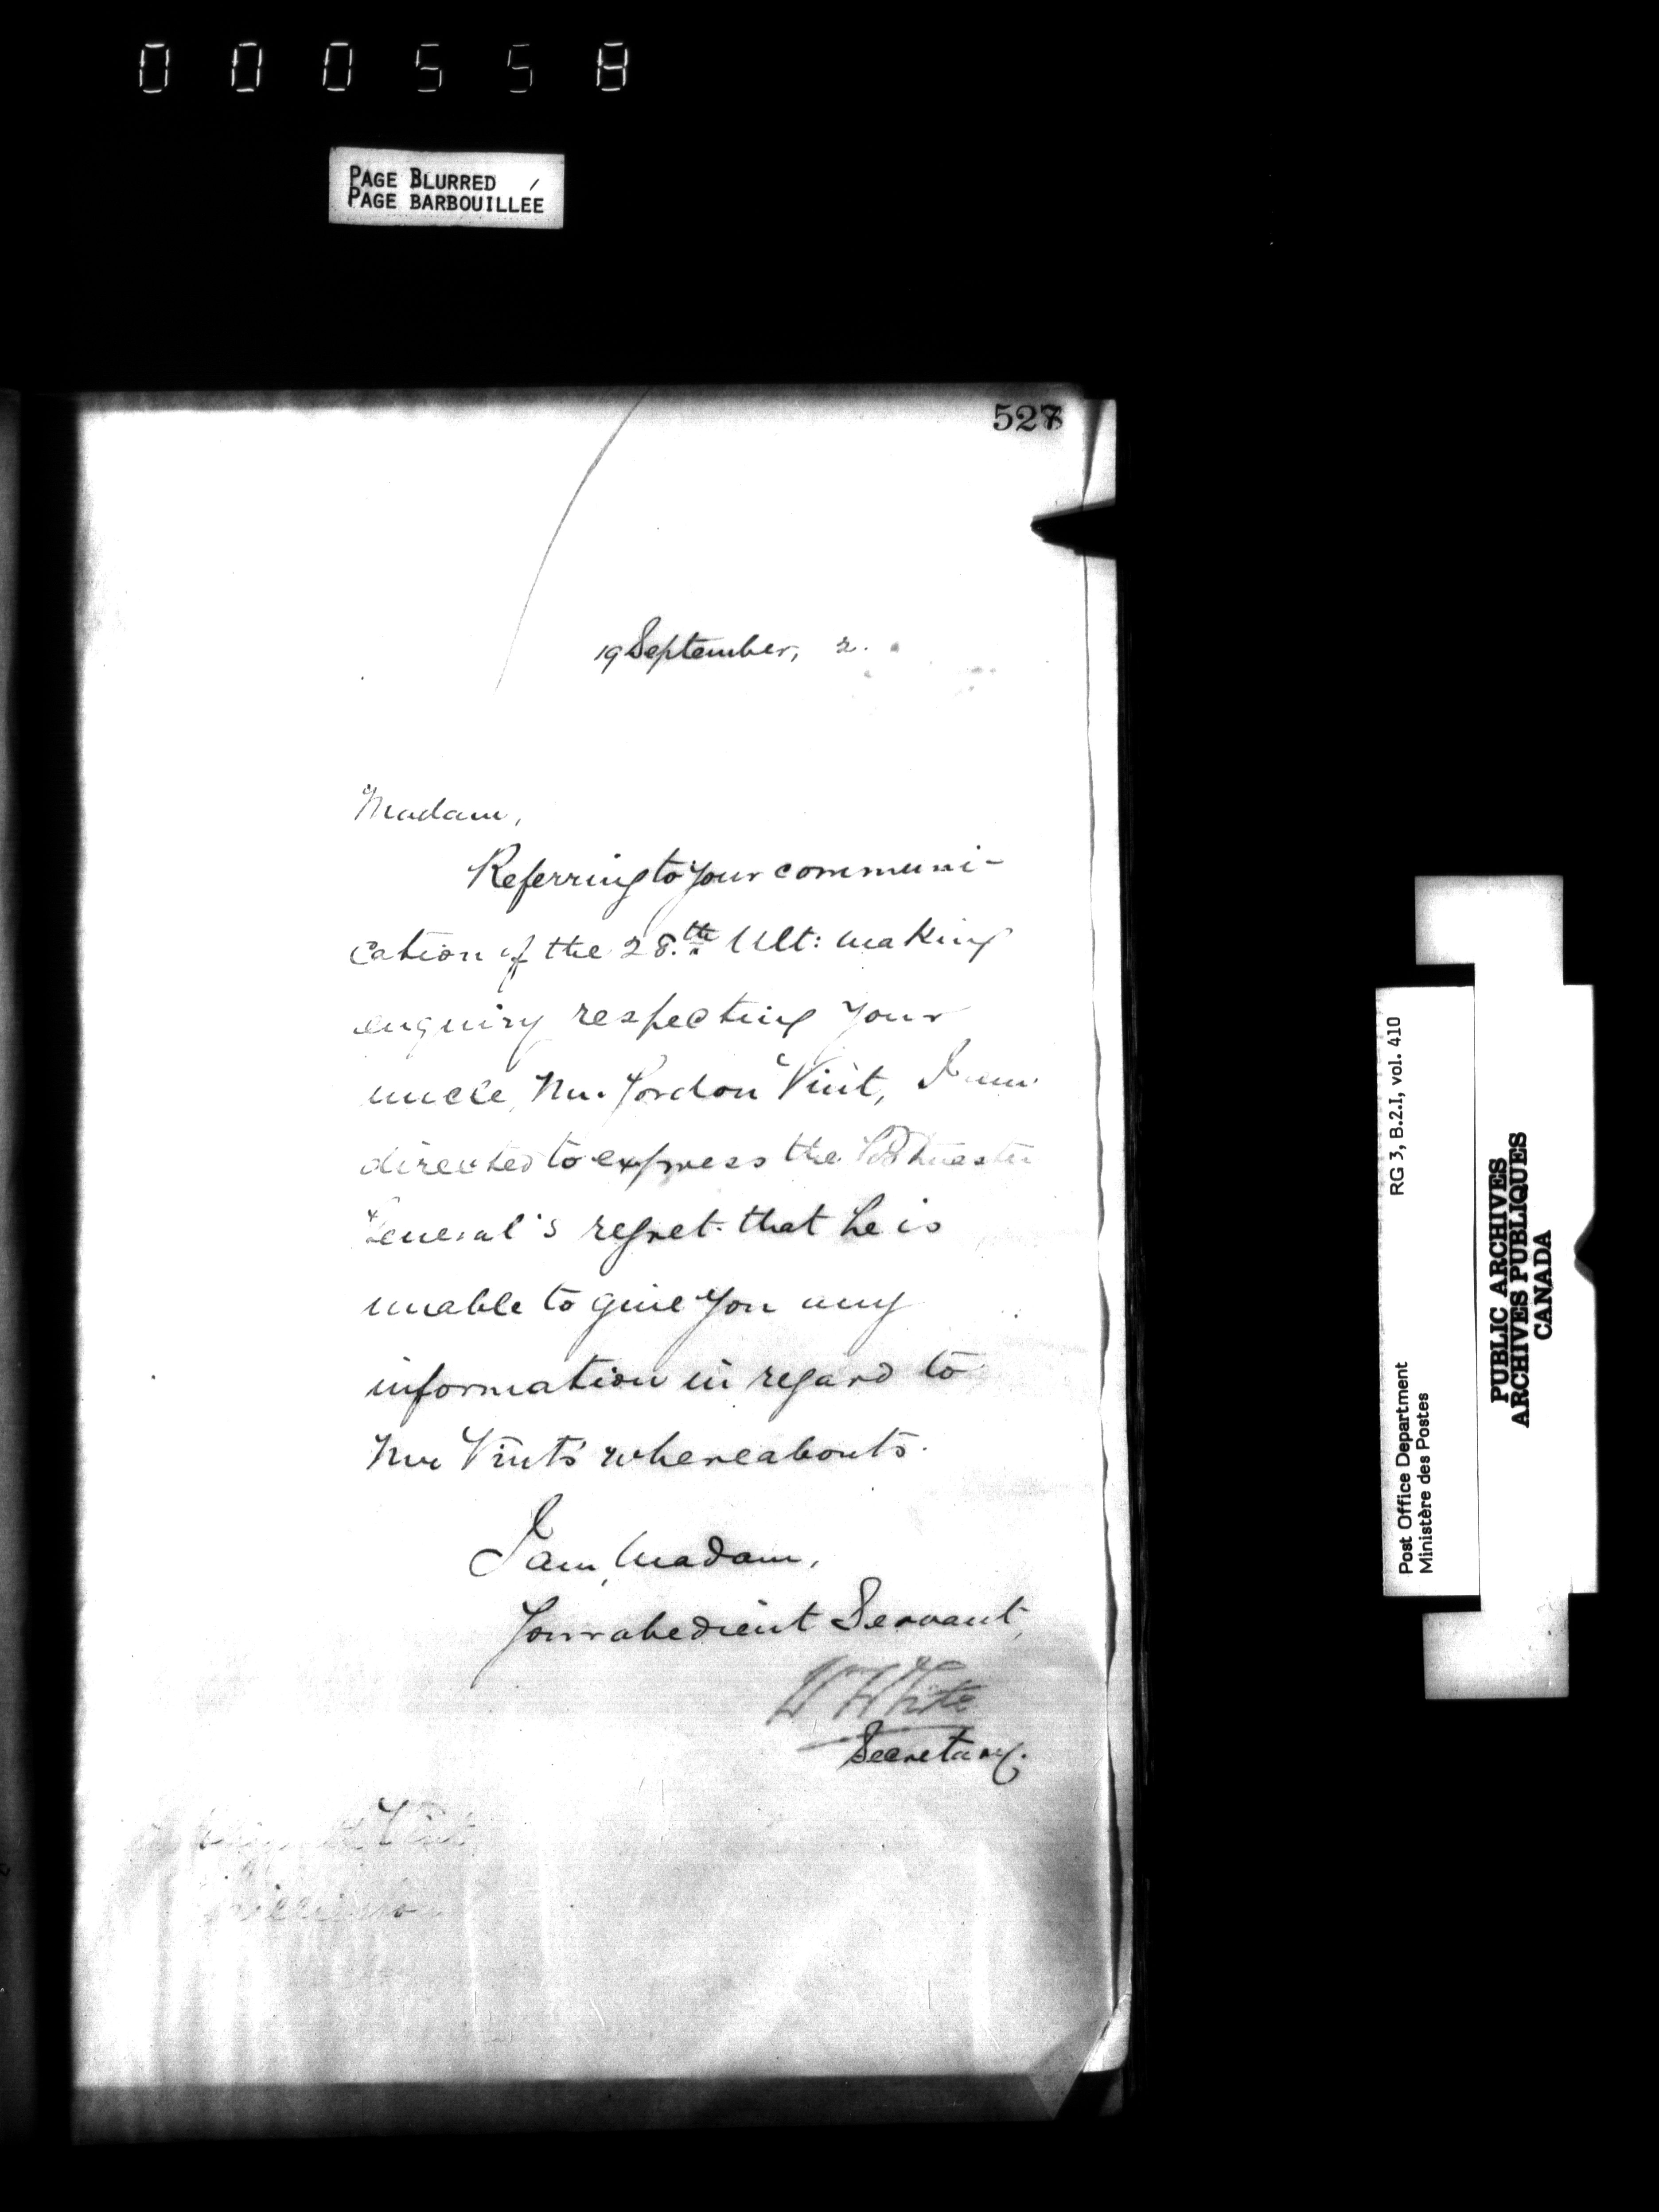 000558
PAGE BLURRED
PAGE BARBOUILLÉE
527
19 September, 2.
Madam,
Referring to your communi-
cation of the 28.th Ult: making
enquiry respecting your
uncle, Mr. Gordon Vint, I am
directed to express the Postmaster
General's regret that he is
unable to give you any
information in regard to
Mr Vint's whereabouts.
I am, Madam,
Your obedient Servant,
W White
Secretary.
Vint
RG 3, B.2.I, vol. 410
Post Office Department
Ministère des Postes
PUBLIC ARCHIVES
ARCHIVES PUBLIQUES
CANADA